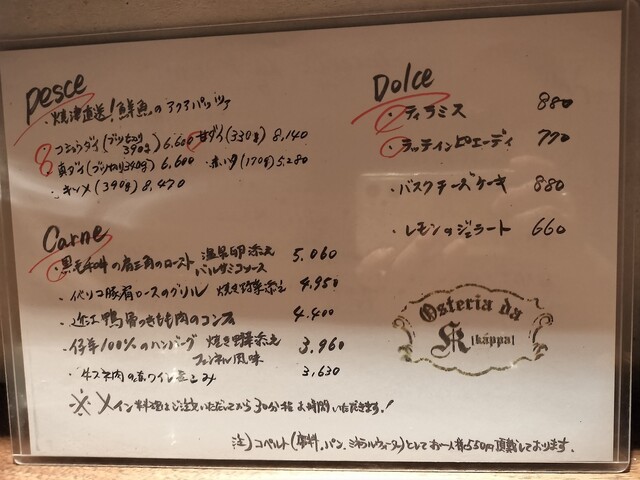 Pesce
・焼津直送！鮮魚のアクアパッツァ
コショウダイ(ブツ切り390g) 6,600 ・甘ダイ(330g) 8,140
真ダイ(ブツ切り340g) 6,600 ・赤ハタ(170g) 5,280
・キンメ(390g) 8,470
Carne
・黒毛和牛の肩三角のロースト 温泉卵添え バルサミコソース 5,060
・イベリコ豚肩ロースのグリル 焼き野菜添え 4,950
・近江鴨骨つきもも肉のコンフィ 4,400
・仔羊100%のハンバーグ 焼き野菜添え フェンネル風味 3,960
・牛スネ肉の赤ワイン煮こみ 3,630
※メイン料理はご注文いただいてから30分程お時間いただきます！
Dolce
・ティラミス 880
・ラッテインピエーディ 770
・バスクチーズケーキ 880
・レモンのジェラート 660
Osteria da
K [kappa]
注)コペルト(席料、パン、ミネラルウォーター)としてお一人様550円頂戴しております。